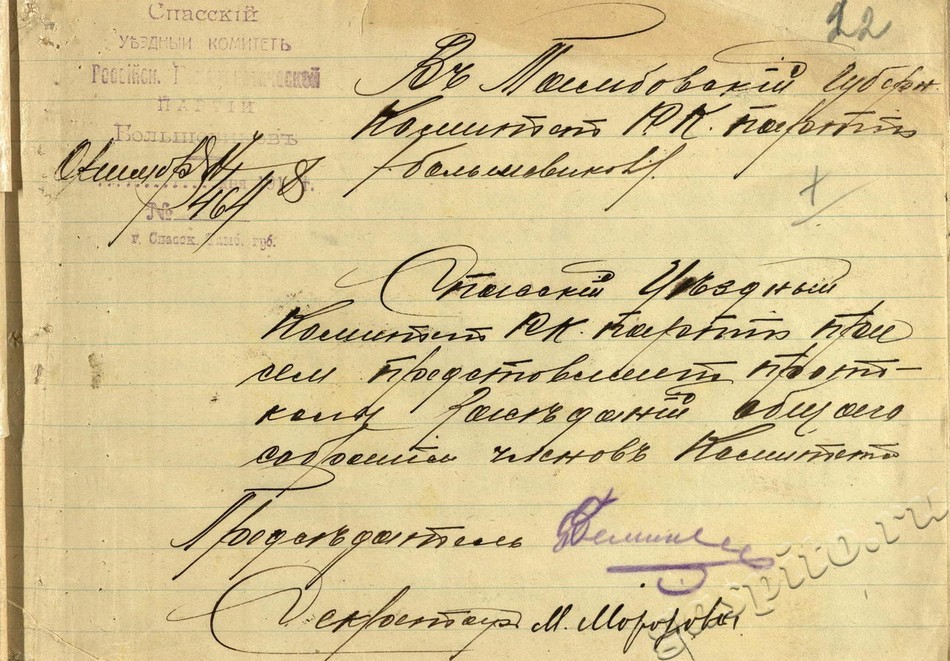 Спасскій
УѢЗДНЫЙ КОМИТЕТЪ
Россійск.
ПАРТІИ
Большевиковъ
Октября 14 8 г.
№ 464
г. Спасск, Тамб. губ.
22
Въ Тамбовскій Губерн.
Комитет Р.К. партіи
/большевиков/.
Спасскій Уѣздный
Комитет Р.К. партіи при
сем представляет прото-
колы Засѣданій общаго
собранія членовъ Комитета
Предсѣдатель
Секретарь М. Морозов
gaspito.ru